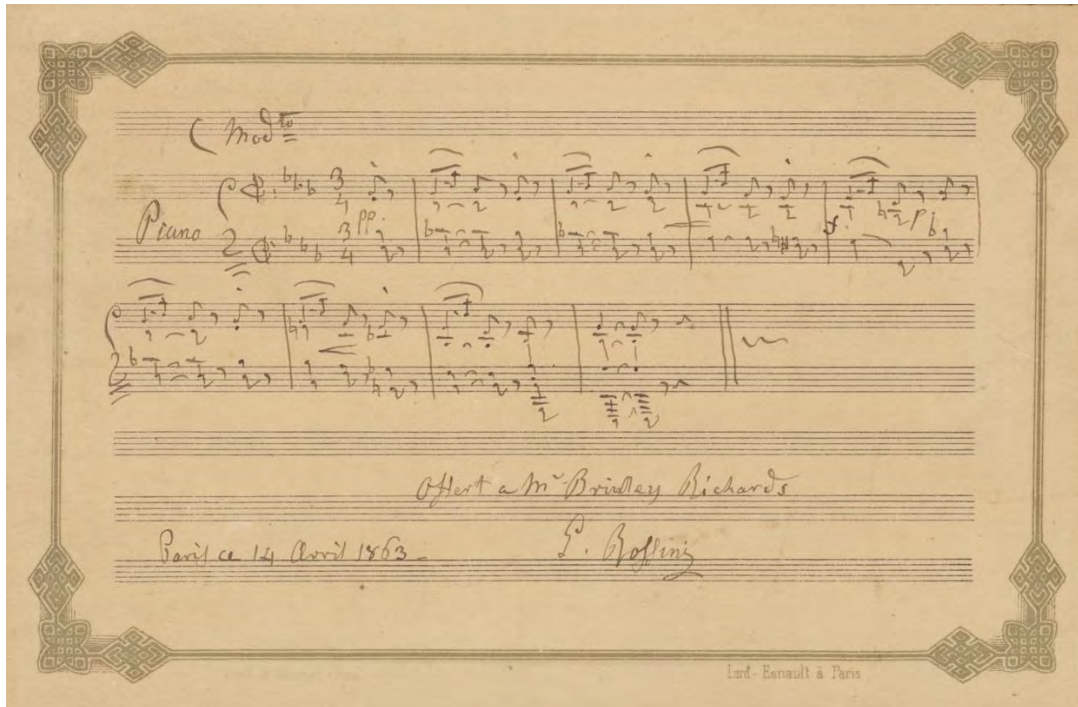 Mod.to
3 4
Piano
pp.
3 4
p
Offert a Mr Brinley Richards
Paris ce 14 Avril 1863 -
G. Rossini
Lard-Esnault à Paris